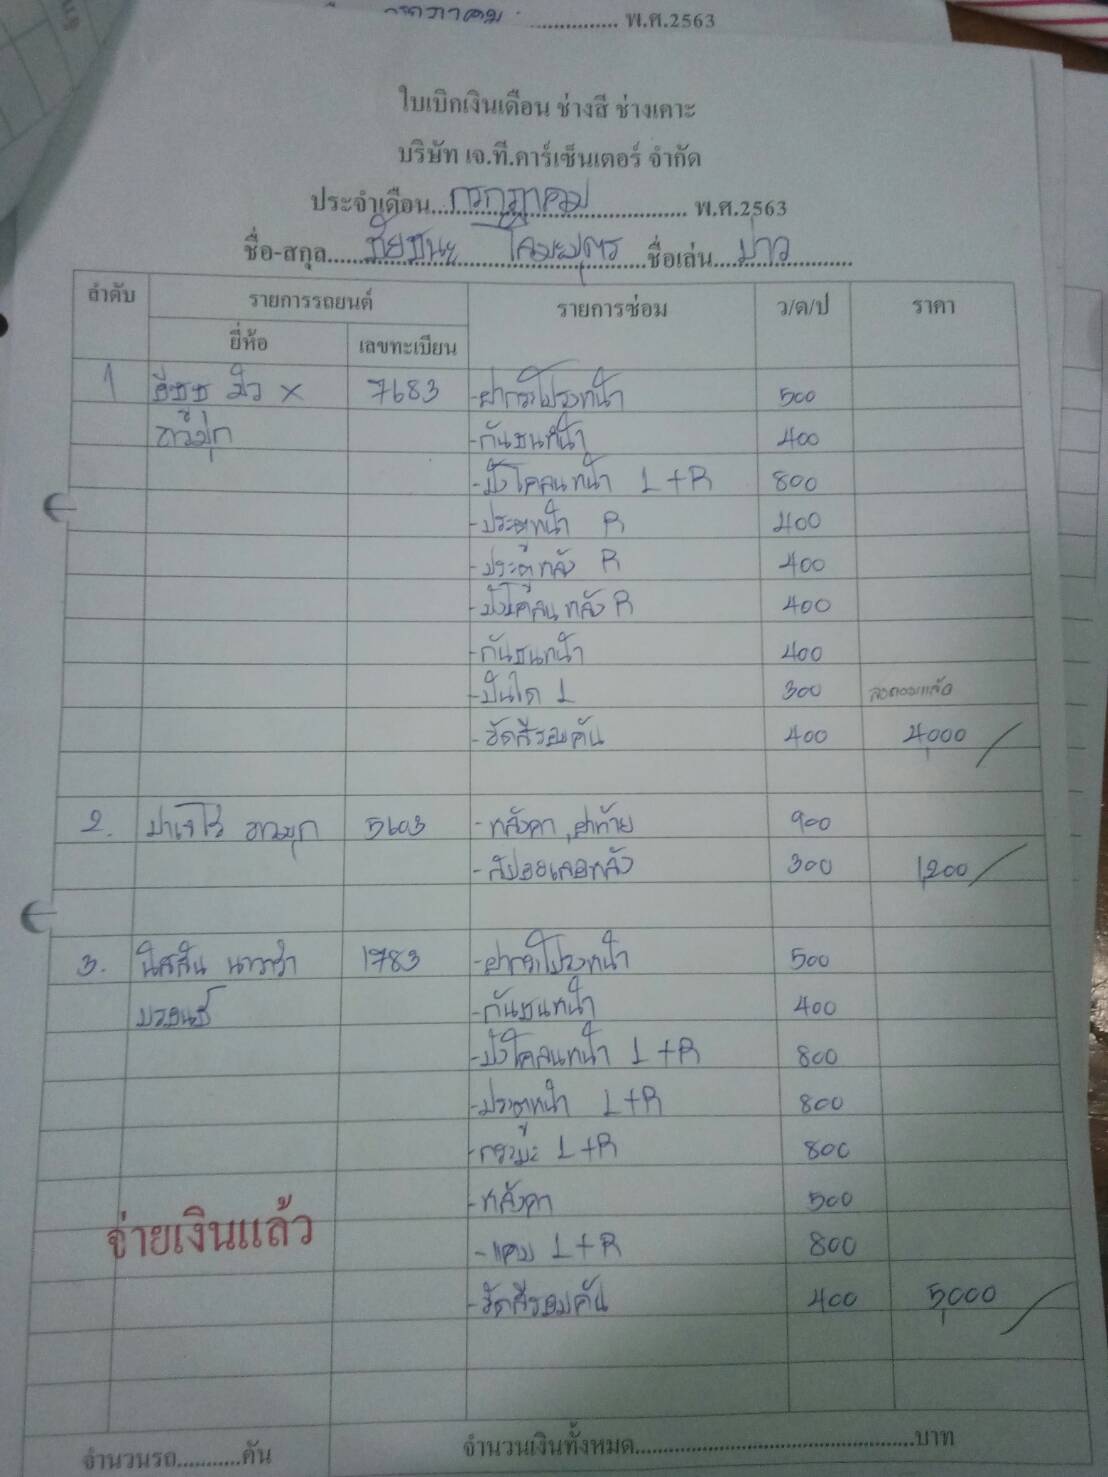 กรกฎาคม พ.ศ.2563
ใบเบิกเงินเดือน ช่างสี ช่างเคาะ
บริษัท เจ.ที.คาร์เซ็นเตอร์ จำกัด
ประจำเดือน กรกฎาคม พ.ศ.2563
ชื่อ-สกุล ชัยชนะ โคมะบุตร ชื่อเล่น บ่าว
ลำดับ รายการรถยนต์ รายการซ่อม ว/ด/ป ราคา
ยี่ห้อ เลขทะเบียน
1 อีซูซุ มิว X 7683 -ฝากระโปรงหน้า 500
ขาวมุก -กันชนหน้า 400
-บังโคลนหน้า L+R 800
-ประตูหน้า R 400
-ประตูหลัง R 400
-บังโคลนหลัง R 400
-กันชนหน้า 400
-บันได L 300
-ขัดสีรอบคัน 400 4,000
2. ปาเจโร่ ขาวมุก 5603 -หลังคา, ฝาท้าย 900
-สปอยเลอหลัง 300 1,200
3. นิสสัน นาวาร่า 1783 -ฝากระโปรงหน้า 500
บรอนซ์ -กันชนหน้า 400
-บังโคลนหน้า L+R 800
-ประตูหน้า L+R 800
-กระบะ L+R 800
-หลังคา 500
จ่ายเงินแล้ว
-แคบ L+R 800
-ขัดสีรอบคัน 400 5,000
จำนวนรถ...........คัน จำนวนเงินทั้งหมด...........บาท